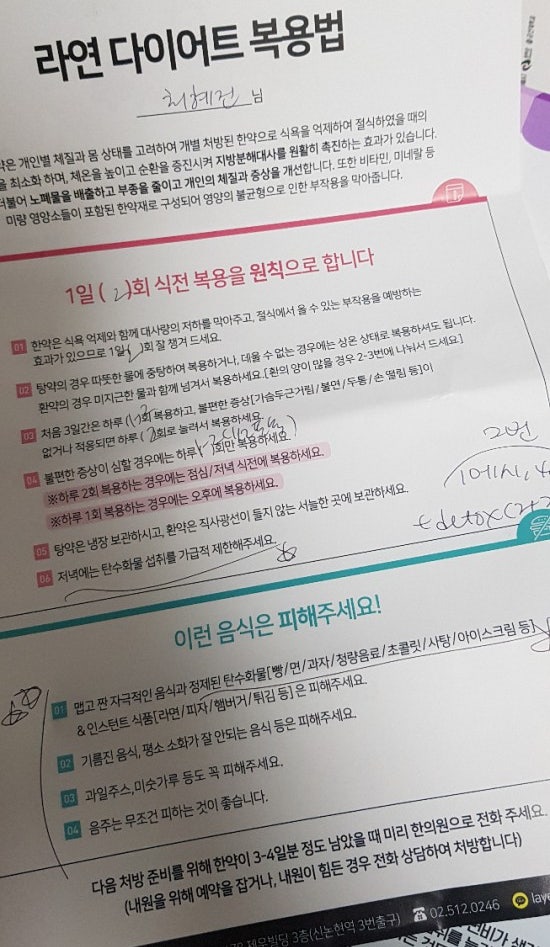 라연 다이어트 복용법
최혜진 님
약은 개인별 체질과 몸 상태를 고려하여 개별 처방된 한약으로 식욕을 억제하여 절식하였을 때의
을 최소화 하며, 체온을 높이고 순환을 증진시켜 지방분해대사를 원활히 촉진하는 효과가 있습니다.
더불어 노폐물을 배출하고 부종을 줄이고 개인의 체질과 증상을 개선합니다. 또한 비타민, 미네랄 등
미량 영양소들이 포함된 한약재로 구성되어 영양의 불균형으로 인한 부작용을 막아줍니다.
1일 ( 2 )회 식전 복용을 원칙으로 합니다
01 한약은 식욕 억제와 함께 대사량의 저하를 막아주고, 절식에서 올 수 있는 부작용을 예방하는
효과가 있으므로 1일 ( )회 잘 챙겨 드세요.
02 탕약의 경우 따뜻한 물에 중탕하여 복용하거나, 데울 수 없는 경우에는 상온 상태로 복용하셔도 됩니다.
환약의 경우 미지근한 물과 함께 넘겨서 복용하세요. [환의 양이 많을 경우 2-3번에 나눠서 드세요]
03 처음 3일간은 하루 ( )회 복용하고, 불편한 증상[가슴두근거림/불면/두통/손 떨림 등]이
없거나 적응되면 하루 ( 2 )회로 늘려서 복용하세요.
04 불편한 증상이 심할 경우에는 하루 1회만 복용하세요.
※하루 2회 복용하는 경우에는 점심/저녁 식전에 복용하세요.
※하루 1회 복용하는 경우에는 오후에 복용하세요.
2번
05 탕약은 냉장 보관하시고, 환약은 직사광선이 들지 않는 서늘한 곳에 보관하세요.
detox
06 저녁에는 탄수화물 섭취를 가급적 제한해주세요.
이런 음식은 피해주세요!
01 맵고 짠 자극적인 음식과 정제된 탄수화물[빵/면/과자/청량음료/초콜릿/사탕/아이스크림 등]
& 인스턴트 식품[라면/피자/햄버거/튀김 등]은 피해주세요.
02 기름진 음식, 평소 소화가 잘 안되는 음식 등은 피해주세요.
03 과일주스, 미숫가루 등도 꼭 피해주세요.
04 음주는 무조건 피하는 것이 좋습니다.
다음 처방 준비를 위해 한약이 3-4일분 정도 남았을 때 미리 한의원으로 전화 주세요.
(내원을 위해 예약을 잡거나, 내원이 힘든 경우 전화 상담하여 처방합니다)
3층(신논현역 3번출구) 02.512.0246 laye